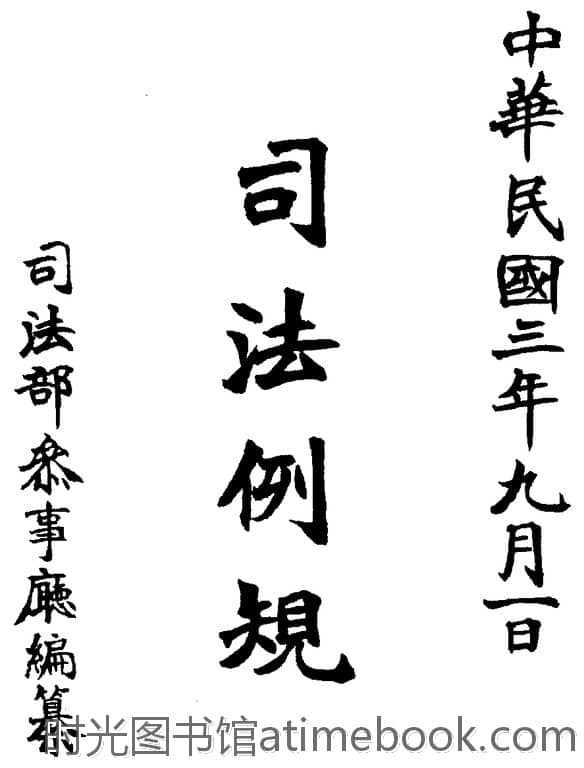 中華民國三年九月一日
司法例規
司法部叅事廳編纂
时光图书馆atimebook.com